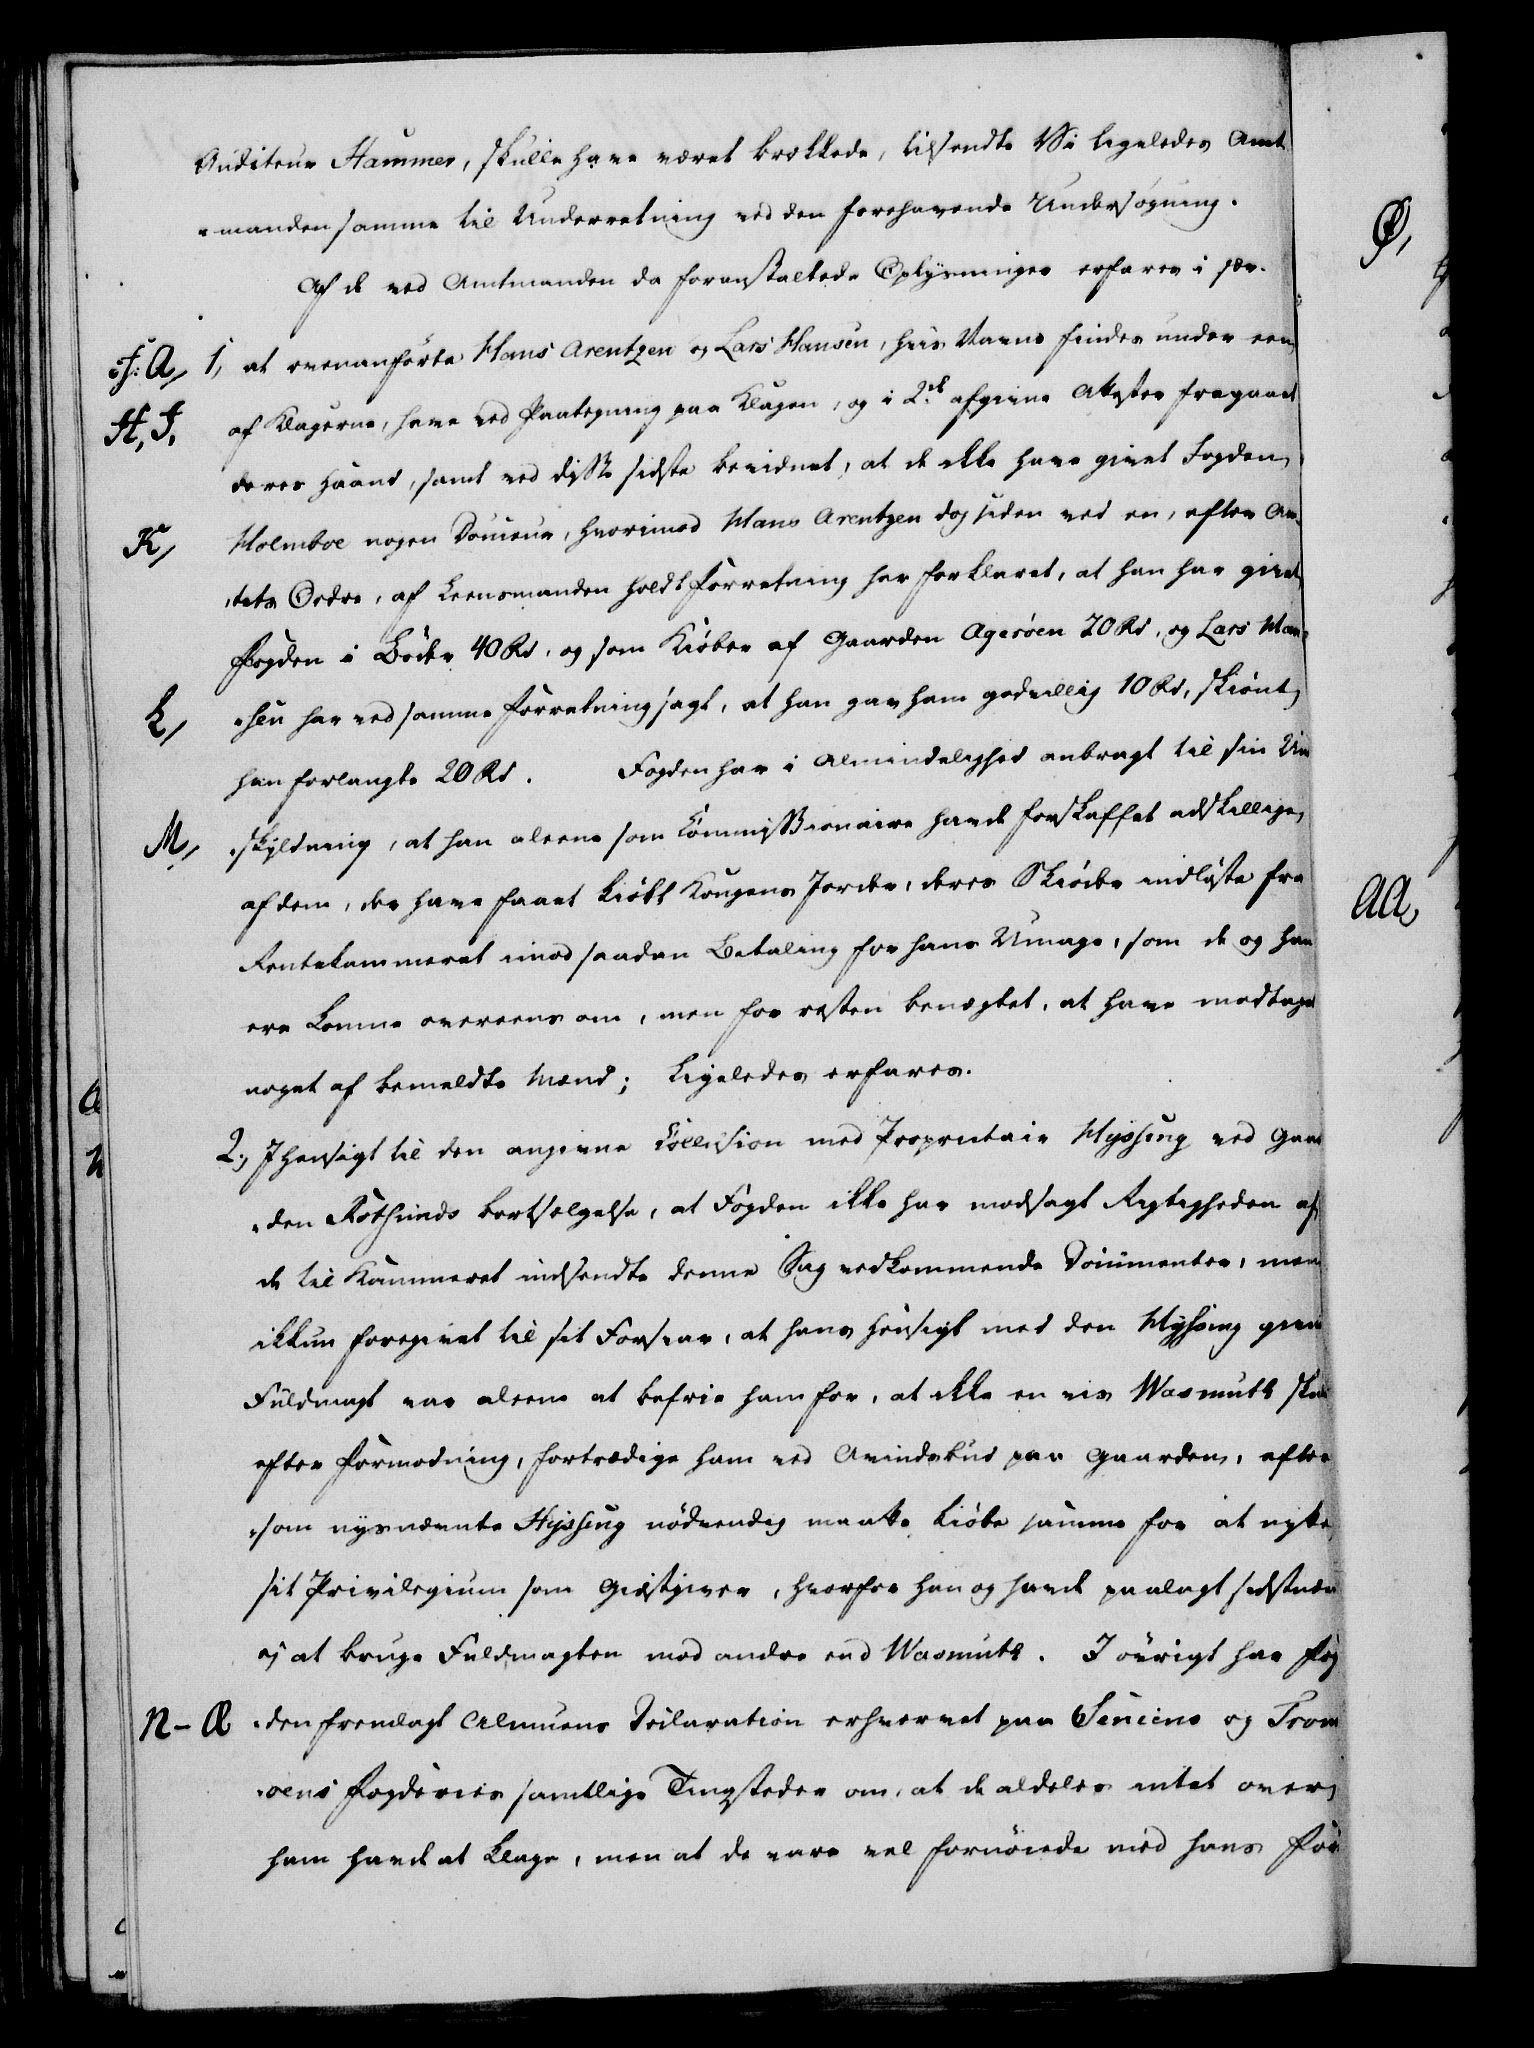 Auditeur Hammer, skulle have været brækkede, tilsendte Vi ligeledes Amt
-manden samme til Underretning ved den forehavende Undersøgning.
Af de ved Amtmanden da foranstaltede Oplysninger erfares i sær.
F: A, 1, at ovenanførte Hans Arentzen og Lars Hansen, hvis Navne findes under een
H, I, af Klagerne, have ved Paategning paa Klagen, og i 2de afgivne Attester fragaaet
deres Haand, samt ved disse sidste bevidnet, at de ikke have givet Fogden
K, Holmboe nogen Douceur, hvorimod Hans Arentzen dog siden ved en, efter Am-
-tets Ordre, af Leensmanden holdt Forretning har forklaret, at han har givet
Fogden i Bøder 40 Rd. og som Kiøber af Gaarden Agerøen 20 Rd. og Lars Han-
L, -sen har ved samme Forretning sagt, at han gav ham godvillig 10 Rd, skiønt
han forlangte 20 Rd. Fogden har i Almindelighed anbragt til sin Und
M, -skyldning, at han aleene som Commissionaire havde forskaffet adskillige
af dem, der have faaet kiøbt Kongens Jorder, deres Skiøder indløste fra
Rentekammeret imod saadan Betaling for hans Umage, som de og han
ere komne overeens om, men for resten benægtet, at have modtaget
noget af bemeldte Mænd; Ligeledes erfares.
2, I Hensigt til den angivne Collision med Proprietair Hysing ved Gaar
-den Rossunds bortsælgelse, at Fogden ikke har modsagt Rigtigheden af
de til Kammeret indsendte denne Sag vedkommende Documenter, men
ikkun foregivet til sit Forsvar, at hans Hensigt med den Hysing givne
Fuldmagt var aleene at befrie ham for, at ikke en vis Wasmuth skul
efter Formodning, fortrædige ham ved Avindsbud paa Gaarden, efter
-som nysnævnte Hysing nødvendig maatte kiøbe samme for at nyde
sit Privilegium som Giæstgiver, hvorfor han og havde paalagt sidstnæv
ej at bruge Fuldmagten mod andre end Wasmuth. I øvrigt har Fog
N - Æ -den fremlagt Almuens Declaration erhvervet paa Seniens og Trom
-søens Fogderies samtlige Tingsteder om, at de aldeles intet over
ham havde at klage, men at de vare vel fornøiede med hans For
Ø,
AA,